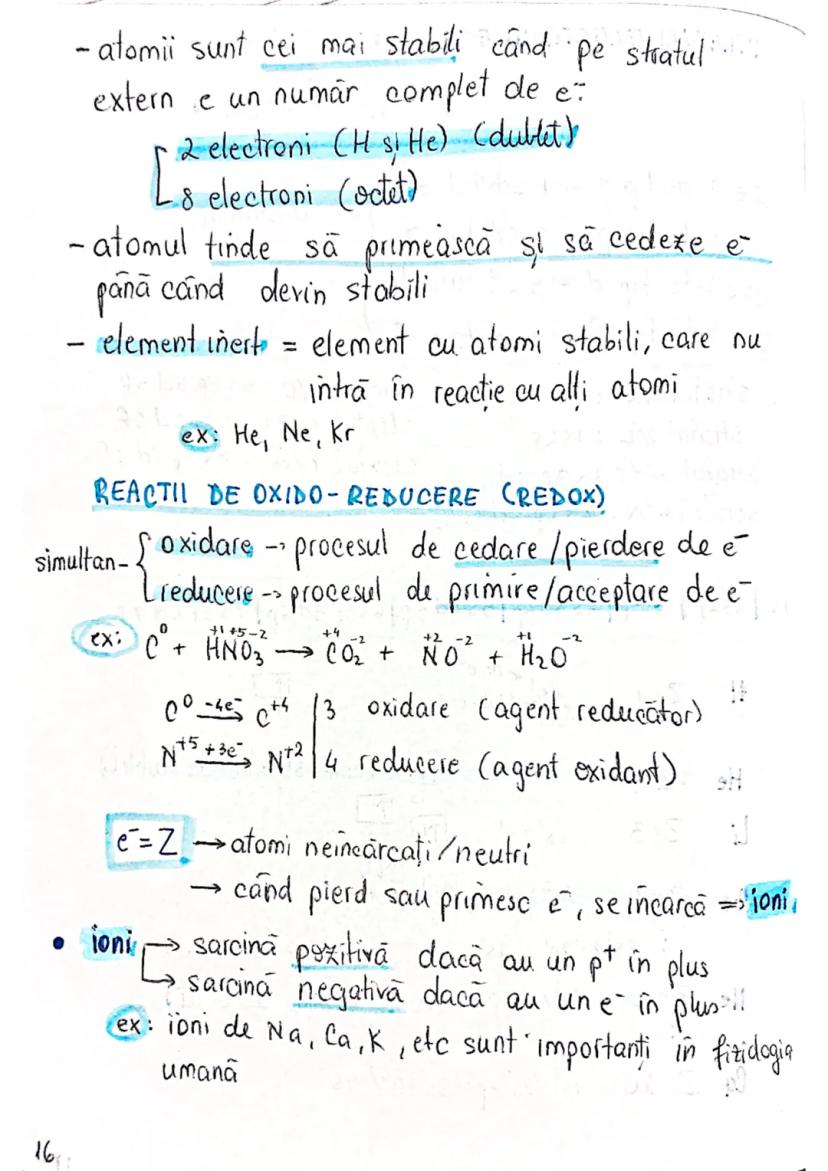 - atomii sunt cei mai stabili când pe stratul
extern e un număr complet de e⁻:
2 electroni (H și He) (dublet)
8 electroni (octet)
- atomul tinde să primească și să cedeze e⁻
până când devin stabili
- element inert = element cu atomi stabili, care nu
intră în reacție cu alți atomi
ex: He, Ne, Kr
REACTII DE OXIDO-REDUCERE (REDOX)
simultan - { oxidare -> procesul de cedare/pierdere de e⁻
reducere -> procesul de primire/acceptare de e⁻
ex: C⁰ + H⁺¹N⁺⁵O₃⁻² → C⁺⁴O₂⁻² + N⁺²O⁻² + H₂⁺¹O⁻²
C⁰ -4e⁻→ C⁺⁴ | 3 oxidare (agent reducător)
N⁺⁵ +3e⁻→ N⁺² | 4 reducere (agent oxidant)
e⁻= Z → atomi neîncărcați/neutri
→ când pierd sau primesc e⁻, se încarcă => ioni
• ioni → sarcină pozitivă dacă au un p⁺ în plus
→ sarcină negativă dacă au un e⁻ în plus
ex: ioni de Na, Ca, K, etc sunt importanți în fiziologia
umană
16